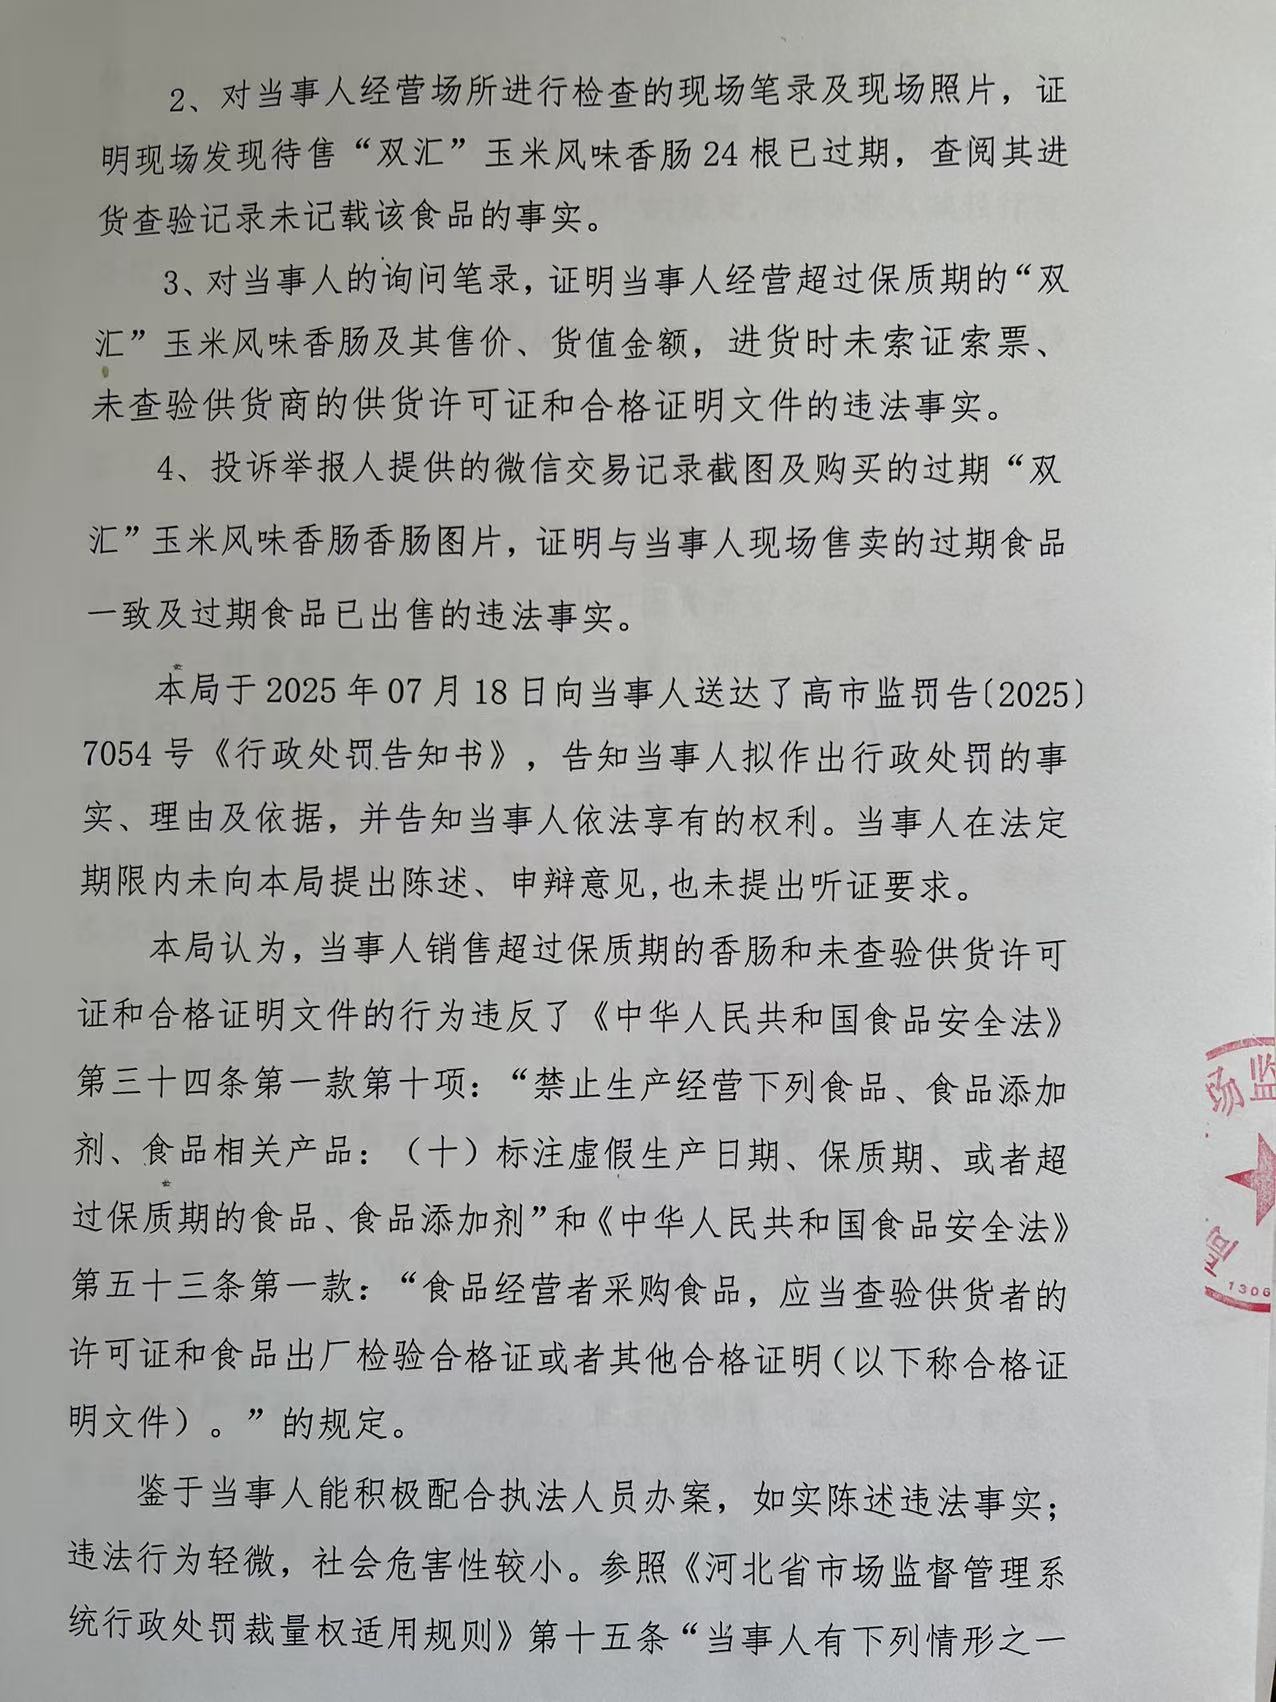 2、对当事人经营场所进行检查的现场笔录及现场照片，证
明现场发现待售“双汇”玉米风味香肠24根已过期，查阅其进
货查验记录未记载该食品的事实。
3、对当事人的询问笔录，证明当事人经营超过保质期的“双
汇”玉米风味香肠及其售价、货值金额，进货时未索证索票、
未查验供货商的供货许可证和合格证明文件的违法事实。
4、投诉举报人提供的微信交易记录截图及购买的过期“双
汇”玉米风味香肠香肠图片，证明与当事人现场售卖的过期食品
一致及过期食品已出售的违法事实。
本局于2025年07月18日向当事人送达了高市监罚告〔2025〕
7054号《行政处罚告知书》，告知当事人拟作出行政处罚的事
实、理由及依据，并告知当事人依法享有的权利。当事人在法定
期限内未向本局提出陈述、申辩意见，也未提出听证要求。
本局认为，当事人销售超过保质期的香肠和未查验供货许可
证和合格证明文件的行为违反了《中华人民共和国食品安全法》
第三十四条第一款第十项：“禁止生产经营下列食品、食品添加
剂、食品相关产品：（十）标注虚假生产日期、保质期、或者超
过保质期的食品、食品添加剂”和《中华人民共和国食品安全法》
第五十三条第一款：“食品经营者采购食品，应当查验供货者的
许可证和食品出厂检验合格证或者其他合格证明（以下称合格证
明文件）。”的规定。
鉴于当事人能积极配合执法人员办案，如实陈述违法事实；
违法行为轻微，社会危害性较小。参照《河北省市场监督管理系
统行政处罚裁量权适用规则》第十五条“当事人有下列情形之一
场监
局
1306